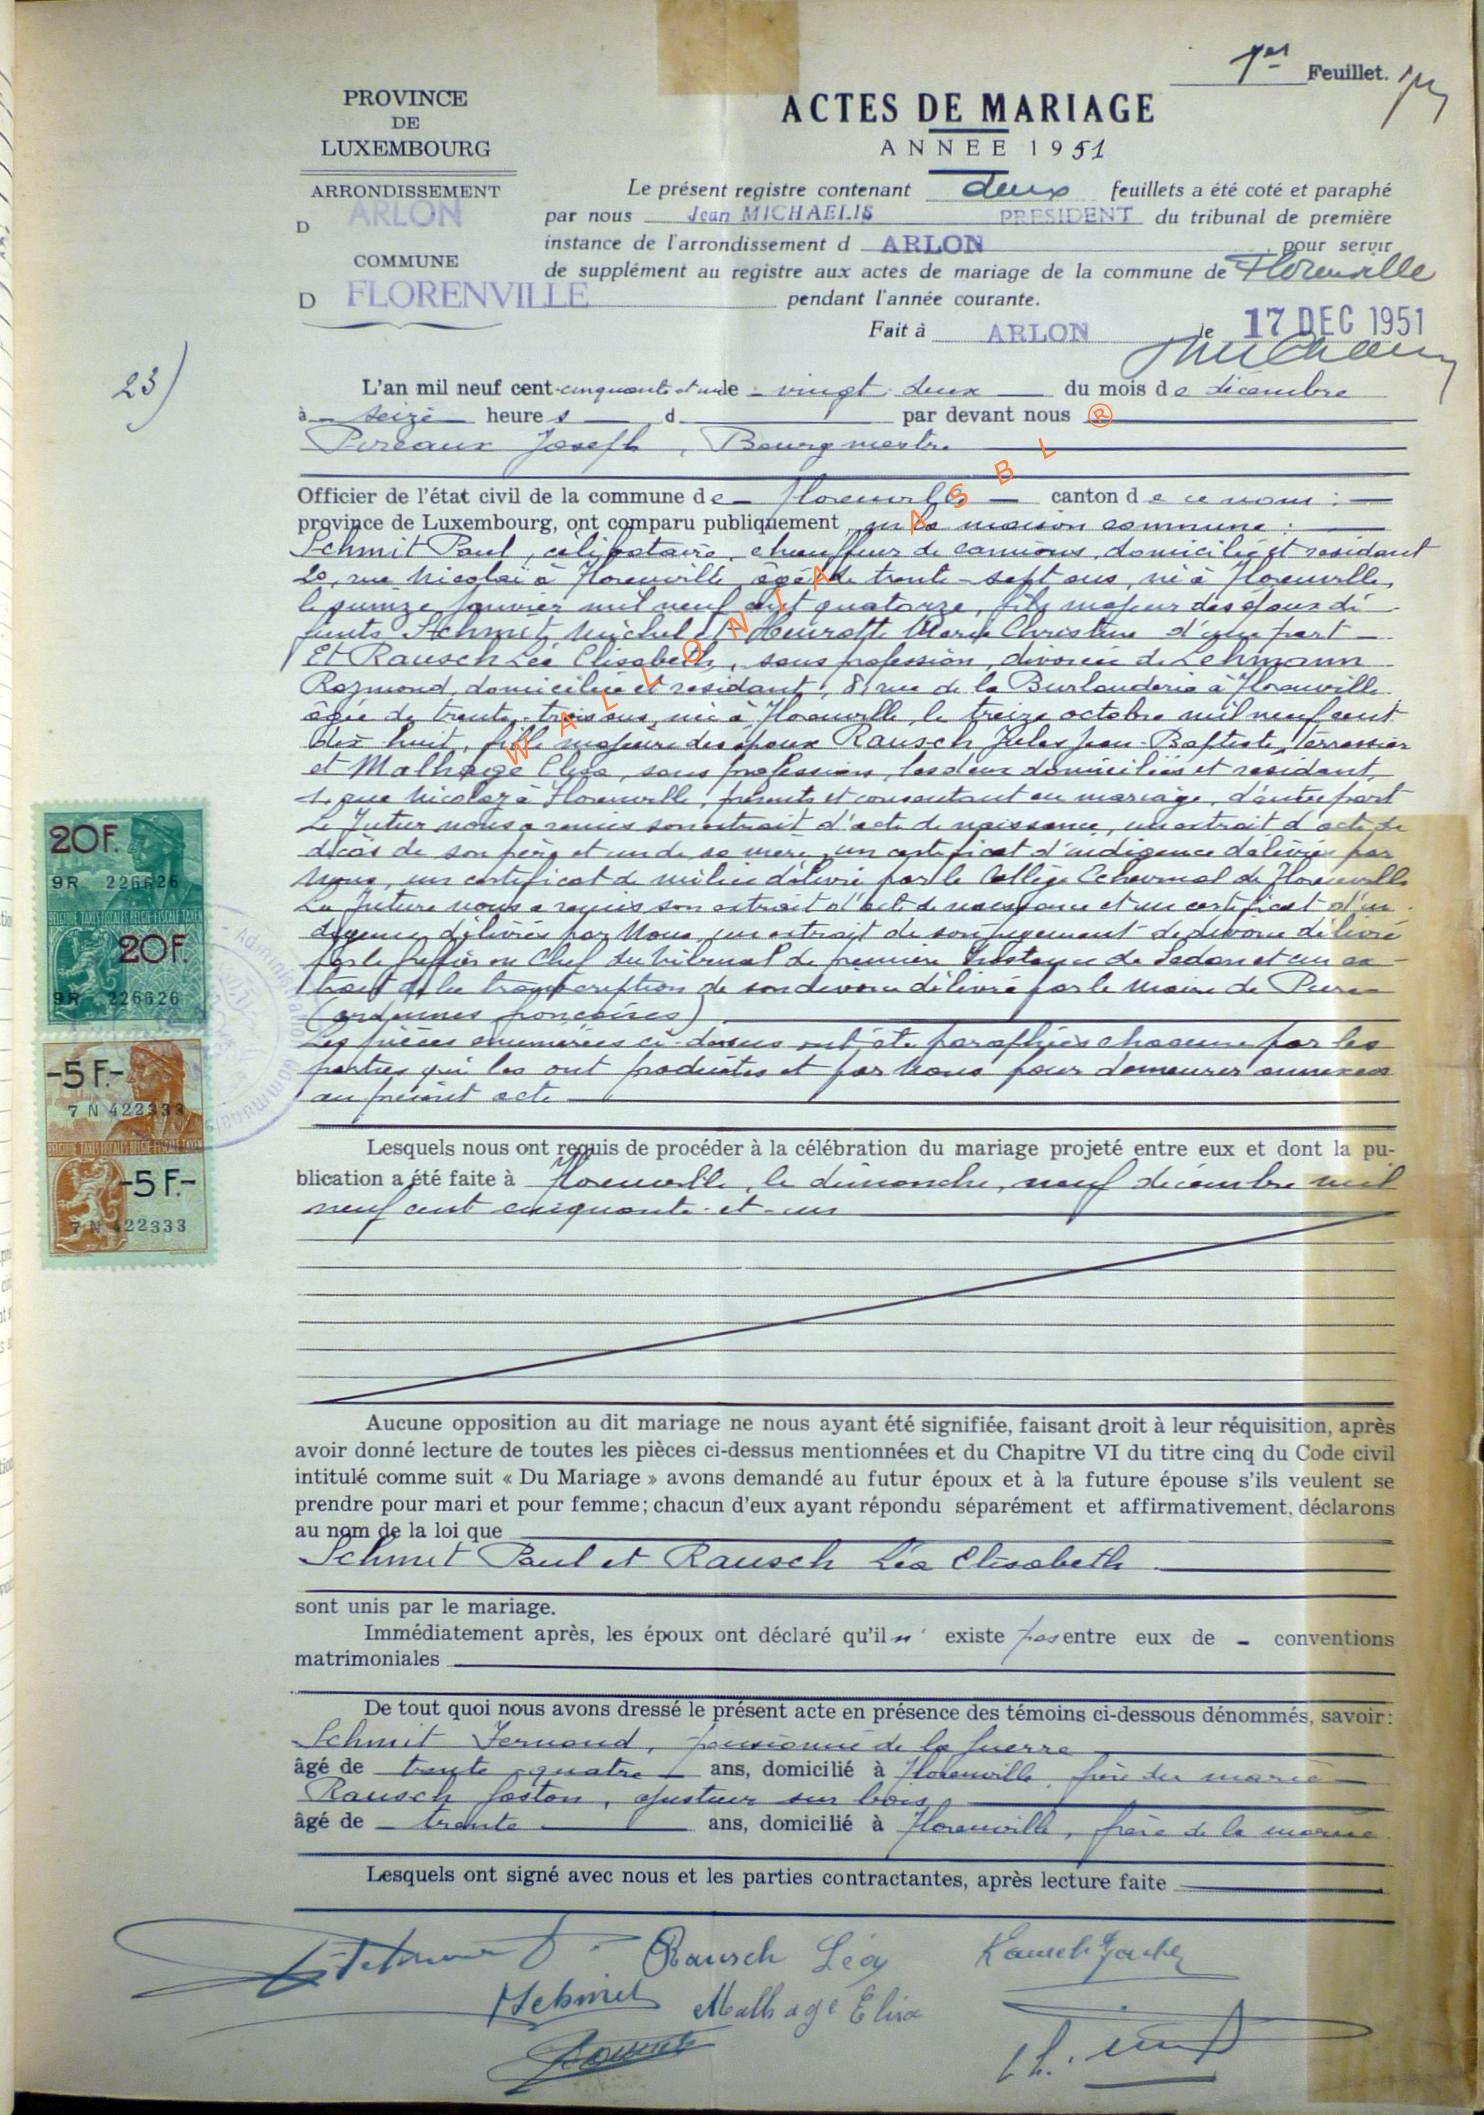 1er Feuillet.
PROVINCE
DE
LUXEMBOURG
ARRONDISSEMENT
D ARLON
COMMUNE
D FLORENVILLE
ACTES DE MARIAGE
ANNEE 1951
Le présent registre contenant deux feuillets a été coté et paraphé
par nous Jean MICHAELIS PRESIDENT du tribunal de première
instance de l'arrondissement d ARLON pour servir
de supplément au registre aux actes de mariage de la commune de Florenville
pendant l'année courante.
Fait à ARLON le 17 DEC 1951
23)
L'an mil neuf cent cinquante et un le vingt deux du mois de décembre
à seize heures d par devant nous
Pireaux Joseph, Bourgmestre
Officier de l'état civil de la commune de Florenville canton de ce nom :
province de Luxembourg, ont comparu publiquement en la maison commune :
Schmit Paul, célibataire, chauffeur de camions, domicilié et résidant
20, rue Nicolaï à Florenville, âgé de trente-sept ans, né à Florenville,
le quinze janvier mil neuf cent quatorze, fils majeur des époux dé-
funts Schmit Michel et Henrotte Marie Christine d'une part
Et Rausch Léa Elisabeth, sans profession, divorcée de Lehmann
Raymond, domiciliée et résidant, 8, rue de la à Florenville
âgée de trente-trois ans, née à Florenville, le treize octobre mil neuf cent
dix huit, fille majeure des époux Rausch Jules Jean-Baptiste, terrassier
et Malhage Elisa, sans profession, les deux domiciliés et résidant,
1, rue Nicolaÿ à Florenville, présents et consentant au mariage, d'autre part
Le futur nous a remis son extrait d'acte de naissance, un extrait d'acte de
décès de son père et un de sa mère, un certificat d'indigence délivré par
Nous, un certificat de milice délivré par le Collège Echevinal de Florenville
La future nous a remis son extrait d'acte de naissance et un certificat d'in
digence délivrés par Nous, un extrait de son jugement de divorce délivré
par le Greffier en Chef du Tribunal de première Instance de Sedan et un ex-
trait de la transcription de son divorce délivré par le Maire de Pure
(ardennes françaises)
Les pièces énumérées ci-dessus ont été paraphées chacune par les
parties qui les ont produites et par Nous pour demeurer annexées
au présent acte
20F.
9R 226626
BELGIQUE TAXES FISCALES BELGIE FISCALE TAXEN
20F.
9R 226626
-5F.-
7 N 422333
BELGIQUE TAXES FISCALES BELGIE FISCALE TAXEN
-5F.-
7 N 422333
Lesquels nous ont requis de procéder à la célébration du mariage projeté entre eux et dont la pu-
blication a été faite à Florenville, le dimanche, neuf décembre mil
neuf cent cinquante-et-un
Aucune opposition au dit mariage ne nous ayant été signifiée, faisant droit à leur réquisition, après
avoir donné lecture de toutes les pièces ci-dessus mentionnées et du Chapitre VI du titre cinq du Code civil
intitulé comme suit « Du Mariage » avons demandé au futur époux et à la future épouse s'ils veulent se
prendre pour mari et pour femme; chacun d'eux ayant répondu séparément et affirmativement, déclarons
au nom de la loi que
Schmit Paul et Rausch Léa Elisabeth
sont unis par le mariage.
Immédiatement après, les époux ont déclaré qu'il n' existe pas entre eux de - conventions
matrimoniales
De tout quoi nous avons dressé le présent acte en présence des témoins ci-dessous dénommés, savoir:
Schmit Fernand, pensionné de la guerre
âgé de trente-quatre ans, domicilié à Florenville, frère du marié
Rausch Gaston, ajusteur sur bois,
âgé de trente ans, domicilié à Florenville, frère de la mariée
Lesquels ont signé avec nous et les parties contractantes, après lecture faite
Rausch Léa
Schmit Malhage Elisa
WALLONIA ASBL ®